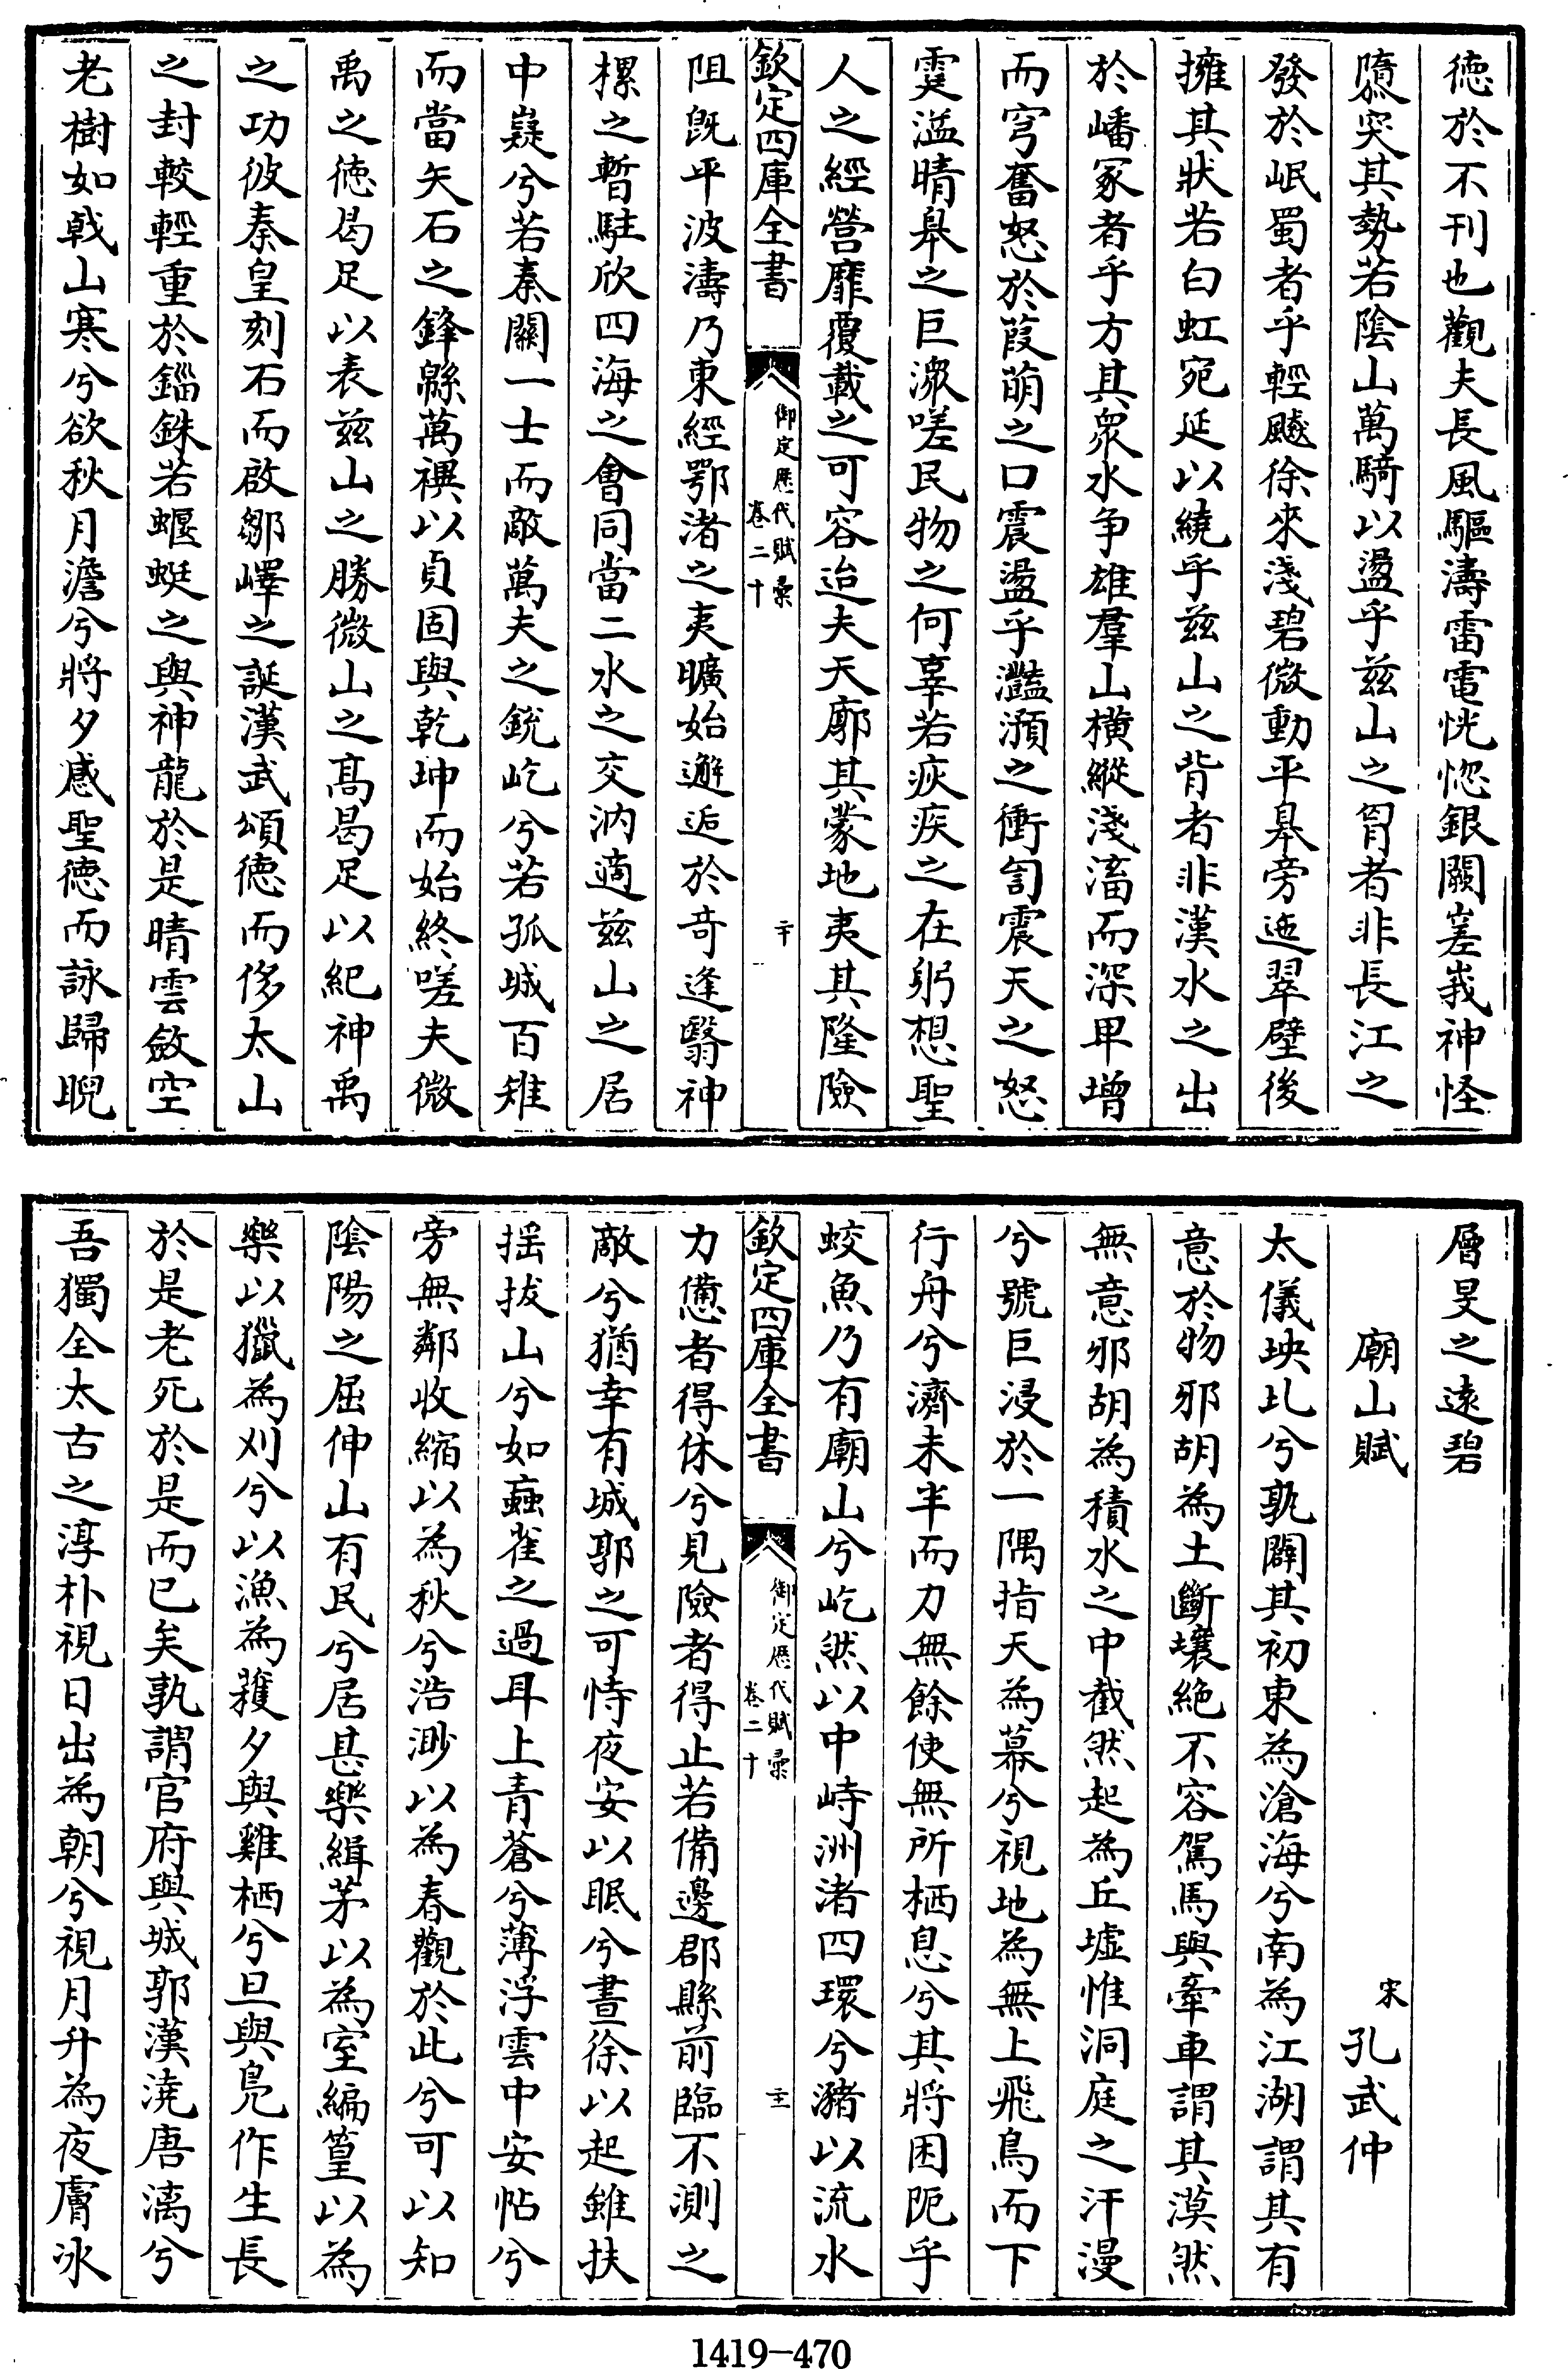 徳於不刊也觀夫長風驅濤雷電恍惚銀闕嵳峩神怪
隳突其勢若陰山萬騎以盪乎兹山之胷者非長江之
發於岷蜀者乎輕飈徐來淺碧微動平臯旁迤翠壁後
擁其狀若白虹宛延以繞乎兹山之背者非漢水之出
於嶓冢者乎方其衆水争雄羣山横縱淺滀而深卑增
而穹奮怒於葭萌之口震盪乎灔澦之衝訇震天之怒
霆溢晴臯之巨潀嗟民物之何辜若疢疾之在躬想聖
人之經營靡覆載之可容迨夫天廓其蒙地夷其隆險
欽定四庫全書
御定歴代賦彙
卷二十
二十
阻旣平波濤乃東經鄂渚之夷曠始邂逅於竒逢翳神
樏之暫駐欣四海之會同當二水之交汭適兹山之居
中嶷兮若秦關一士而敵萬夫之銳屹兮若孤城百雉
而當矢石之鋒緜萬禩以貞固與乾坤而始終嗟夫微
禹之徳曷足以表兹山之勝微山之髙曷足以紀神禹
之功彼秦皇刻石而啟鄒嶧之誕漢武頌徳而侈太山
之封較輕重於錙銖若蝘蜓之與神龍於是晴雲斂空
老樹如㦸山寒兮欲秋月澹兮將夕感聖徳而詠歸睨
層旻之遠碧
廟山賦
宋
孔武仲
太儀坱圠兮孰闢其初東為滄海兮南為江湖謂其有
意於物邪胡為土斷壤絶不容駕馬與牽車謂其漠然
無意邪胡為積水之中截然起為丘墟惟洞庭之汗漫
兮號巨浸於一隅指天為幕兮視地為無上飛鳥而下
行舟兮濟未半而力無餘使無所栖息兮其將困阨乎
蛟魚乃有廟山兮屹然以中峙洲渚四環兮瀦以流水
欽定四庫全書
御定歴代賦彙
卷二十
二十一
力憊者得休兮見險者得止若備邊郡縣前臨不測之
敵兮猶幸有城郭之可恃夜安以眠兮晝徐以起雖扶
揺拔山兮如蝱雀之過耳上青蒼兮薄浮雲中安帖兮
旁無鄰收縮以為秋兮浩渺以為春觀於此兮可以知
陰陽之屈伸山有民兮居甚樂緝茅以為室編篁以為
樂以獵為刈兮以漁為穫夕與雞栖兮旦與鳬作生長
於是老死於是而已矣孰謂官府與城郭漢澆唐漓兮
吾獨全太古之淳朴視日出為朝兮視月升為夜膚冰
1419-470